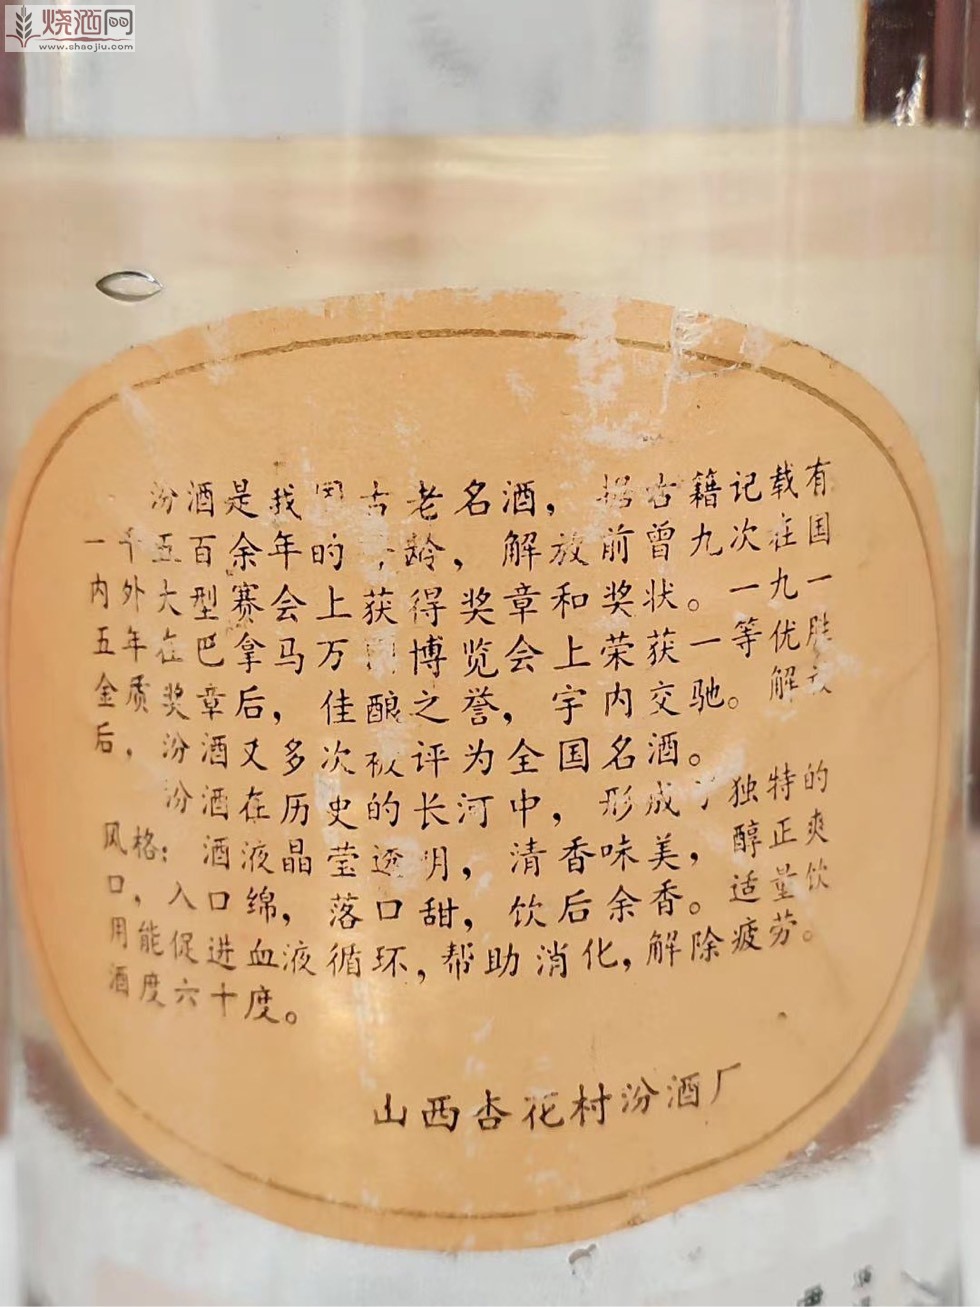 烧酒网
www.shaojiu.com
汾酒是我国古老名酒，据古籍记载有
一千五百余年的 龄，解放前曾九次在国
内外大型赛会上获得奖章和奖状。一九一
五年在巴拿马万国博览会上荣获一等优胜
金质奖章后，佳酿之誉，宇内交驰。解放
后，汾酒又多次被评为全国名酒。
汾酒在历史的长河中，形成了独特的
风格：酒液晶莹透明，清香味美，醇正爽
口，入口绵，落口甜，饮后余香。适量饮
用能促进血液循环，帮助消化，解除疲劳。
酒度六十度。
山西杏花村汾酒厂